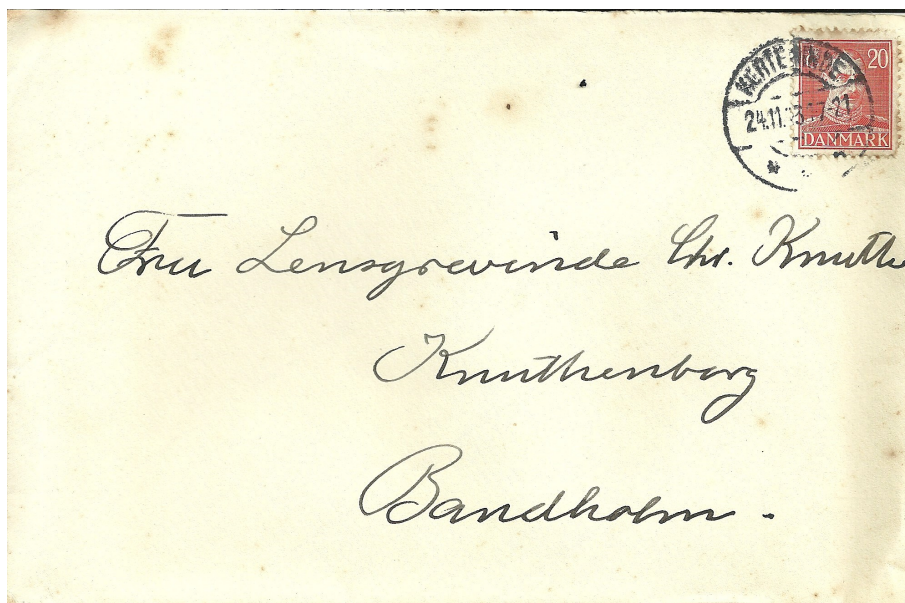 20
KERTEMINDE
24.11.43.17-21
DANMARK
Fru Lensgrevinde Chr. Knuth
Knuthenborg
Bandholm.